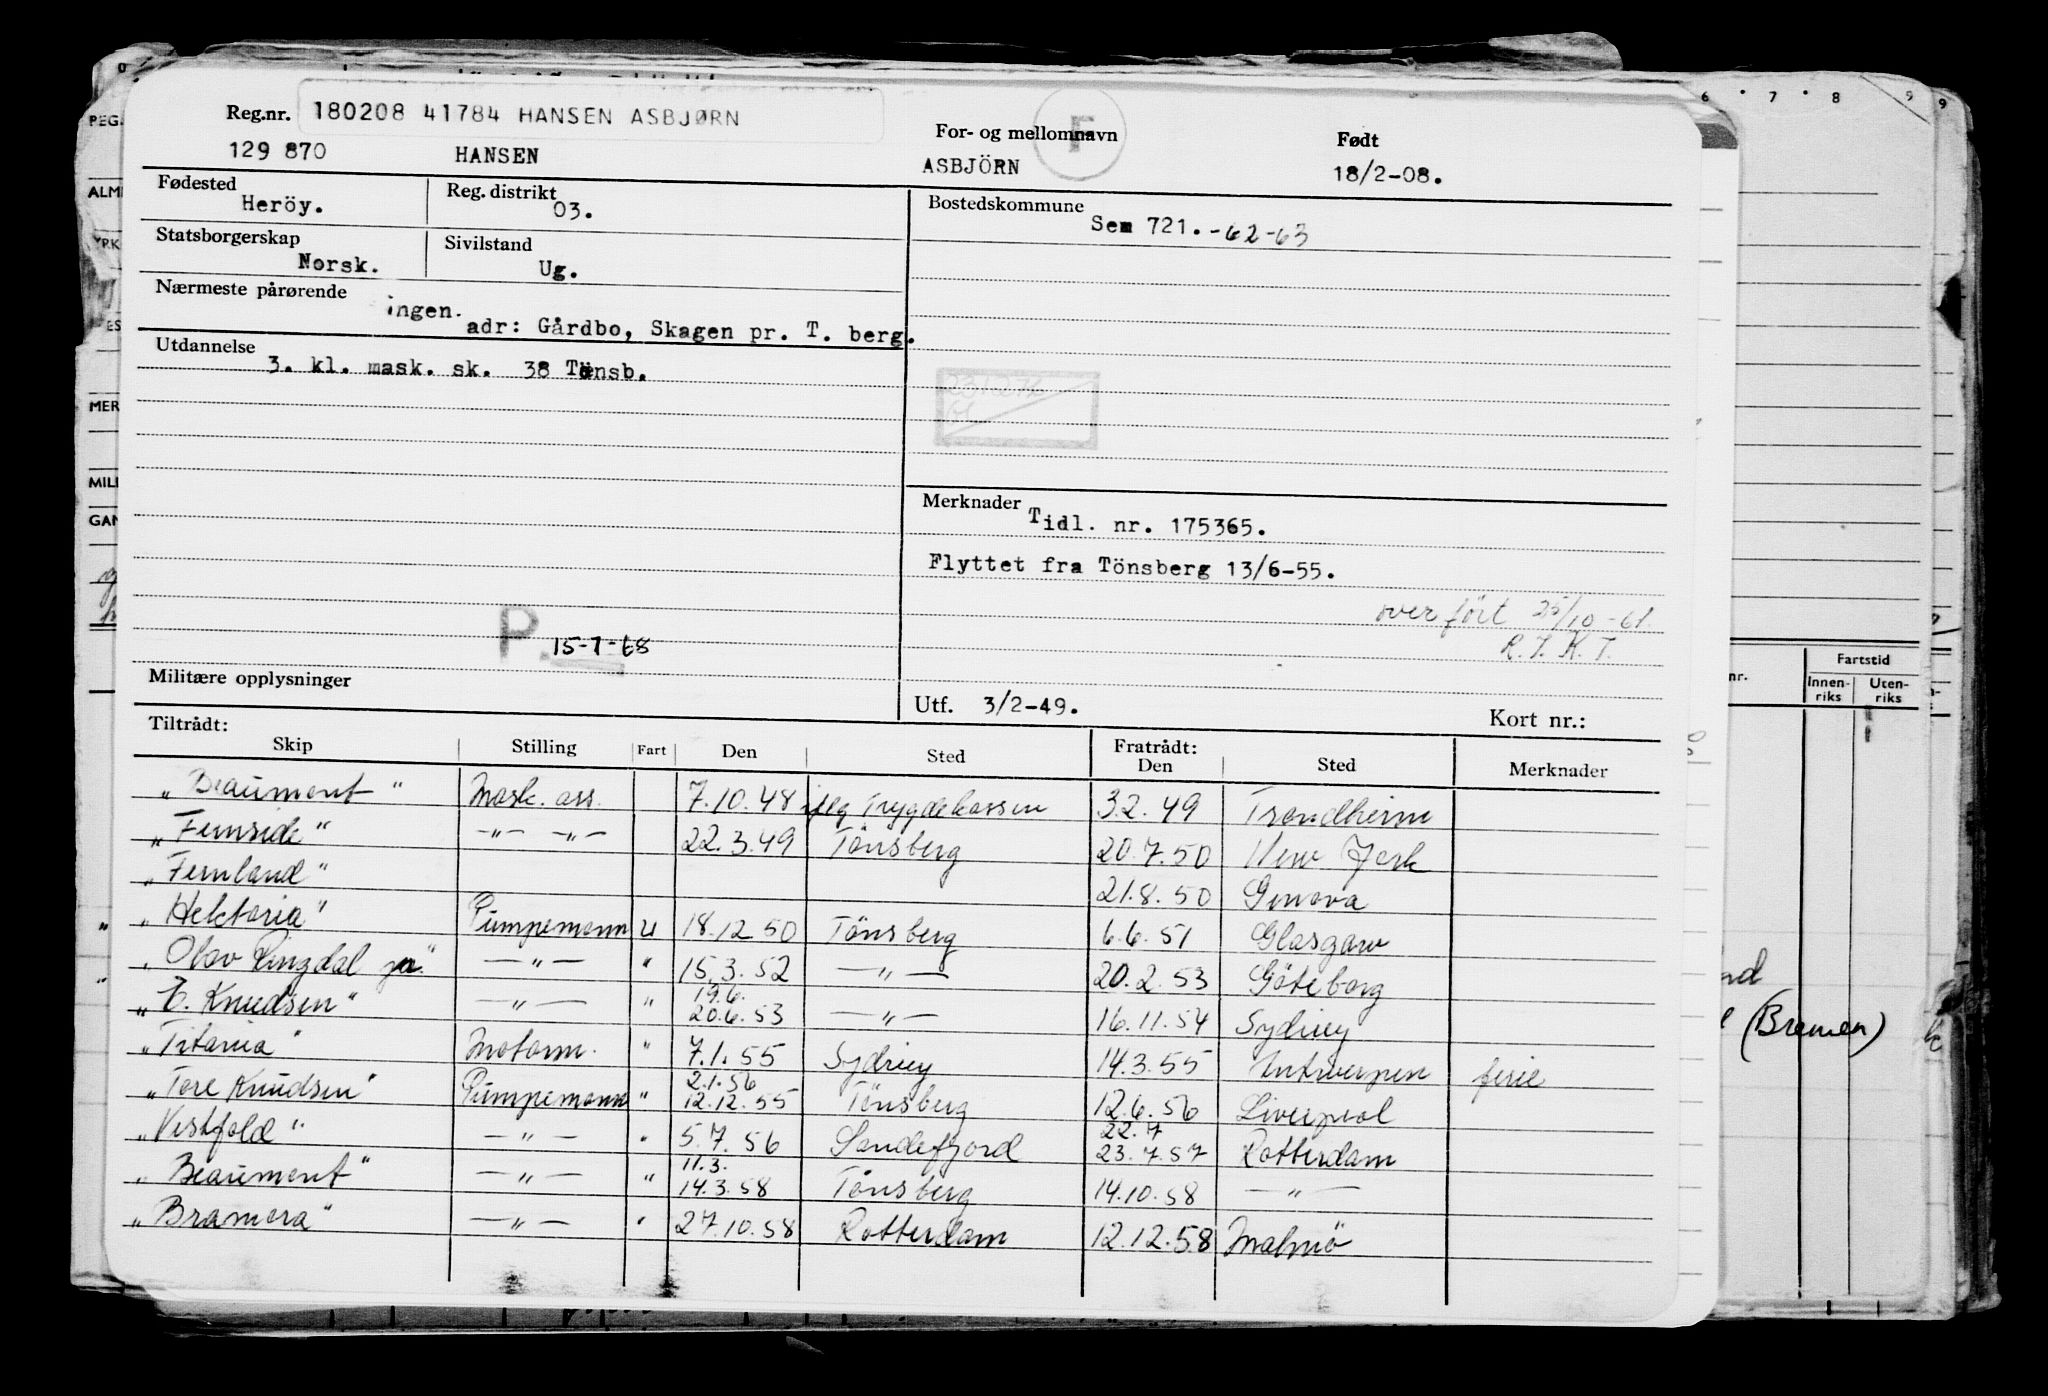 Reg.nr. 180208 41784 HANSEN ASBJØRN F For- og mellomnavn Født
129 870 HANSEN ASBJÖRN 18/2-08.
Fødested Heröy. Reg. distrikt 03. Bostedskommune Sem 721. -62-63
Statsborgerskap Norsk. Sivilstand Ug.
Nærmeste pårørende ingen.
adr: Gårdbo, Skagen pr. T. berg.
Utdannelse 3. kl. mask. sk. 38 Tönsb.
Merknader Tidl. nr. 175365.
Flyttet fra Tönsberg 13/6-55.
overfört 25/10-61
R.T.K.T.
P. 15-7-68
Militære opplysninger
Utf. 3/2-49. Kort nr.:
Tiltrådt: Fratrådt:
Skip Stilling Fart Den Sted Den Sted Merknader
"Beaumont" Mask. ass. 7.10.48 iflg Trygdekassen 3.2.49 Trondheim
"Fernside" —"— —"— 22.3.49 Tönsberg 20.7.50 New York
"Fernland" 21.8.50 Genova
"Hektoria" Pumpemann u 18.12 50 Tönsberg 6.6.51 Glasgow
"Olav Ringdal jr." —"— " 15.3.52 —"— 20.2.53 Göteborg
"E. Knudsen" —"— " 19.6. 20.6.53 —"— 16.11.54 Sydney
"Titania" Motorm. " 7.1.55 Sydney 14.3.55 Antwerpen ferie
"Tore Knudsen" Pumpemann " 2.1.56 12.12.55 Tönsberg 12.6.56 Liverpool
"Vestfold" —"— " 5.7.56 Sandefjord 22.7 23.7.57 Rotterdam
"Beaumont" —"— " 11.3. 14.3.58 Tönsberg 14.10.58 —"—
"Bramora" —"— " 27.10.58 Rotterdam 12.12.58 Malmö
6 7 8 9 9
ALM
MER
MILI
GAN
nr. Fartstid
Innen-riks Uten-riks
(Bremen)